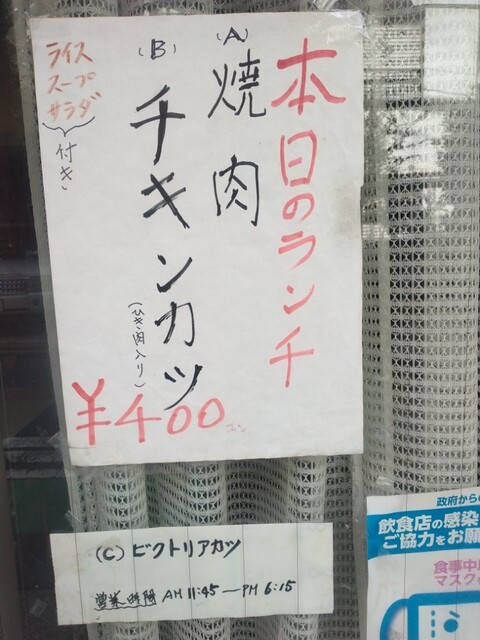 本日のランチ
(A)
焼肉
(B)
チキンカツ
(ひき肉入り)
ライス
スープ
サラダ
付き
¥400
(C) ビクトリアカツ
営業時間 AM 11:45 ― PM 6:15
政府から
飲食店の感染
ご協力をお願
食事中
マスク